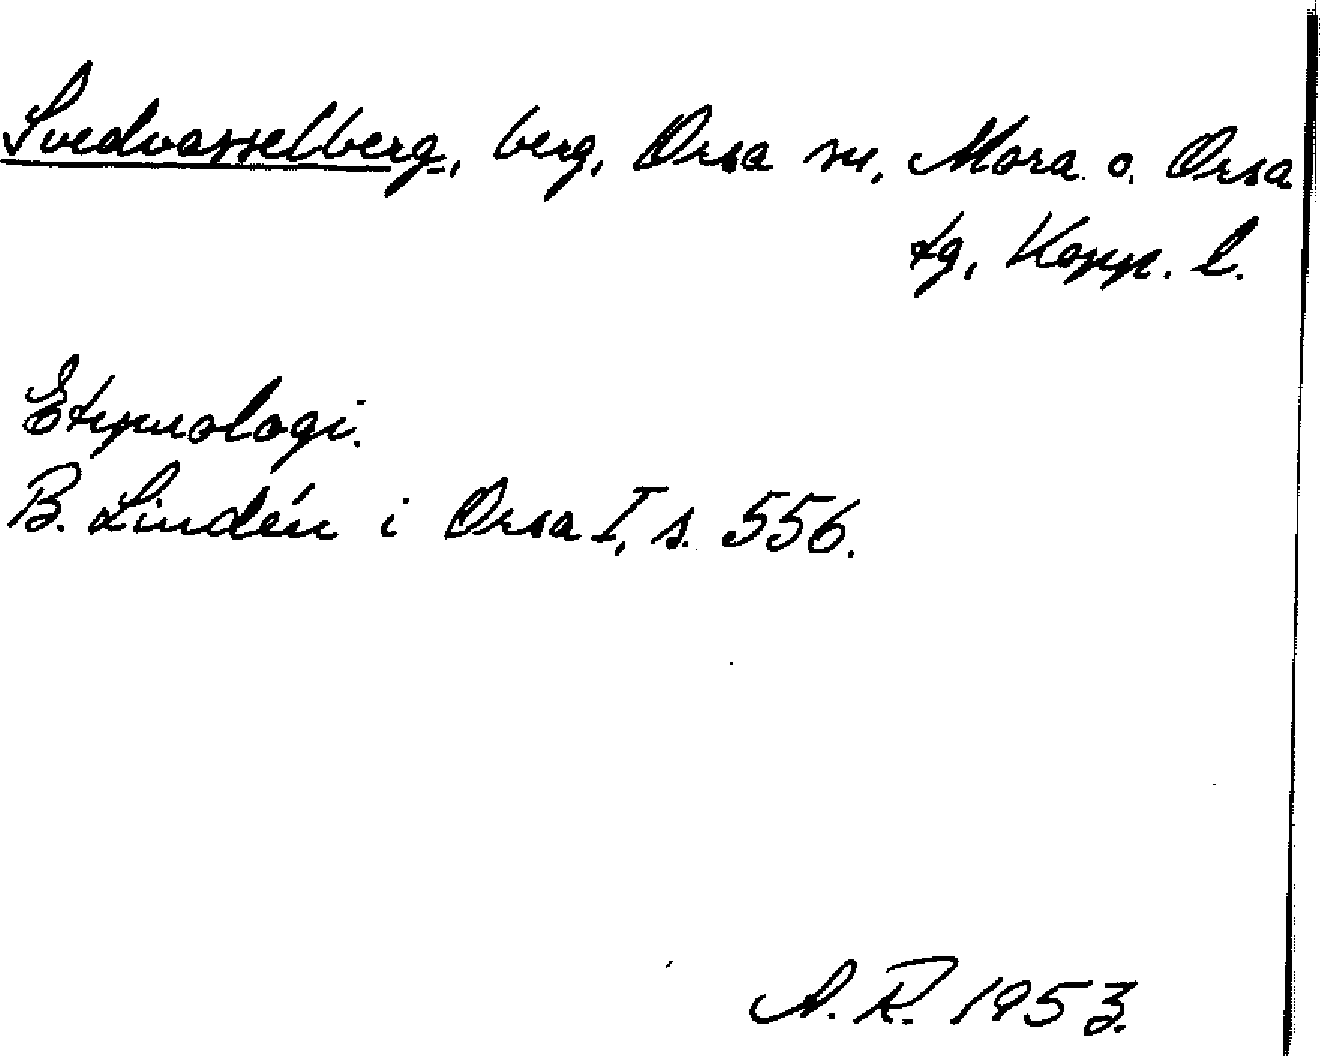 Svedvasselberg, berg, Orsa sn, Mora o. Orsa
tg, Kopp. l.
Etymologi.
B. Lindén i Orsa I, s. 556.
A.R. 1953.